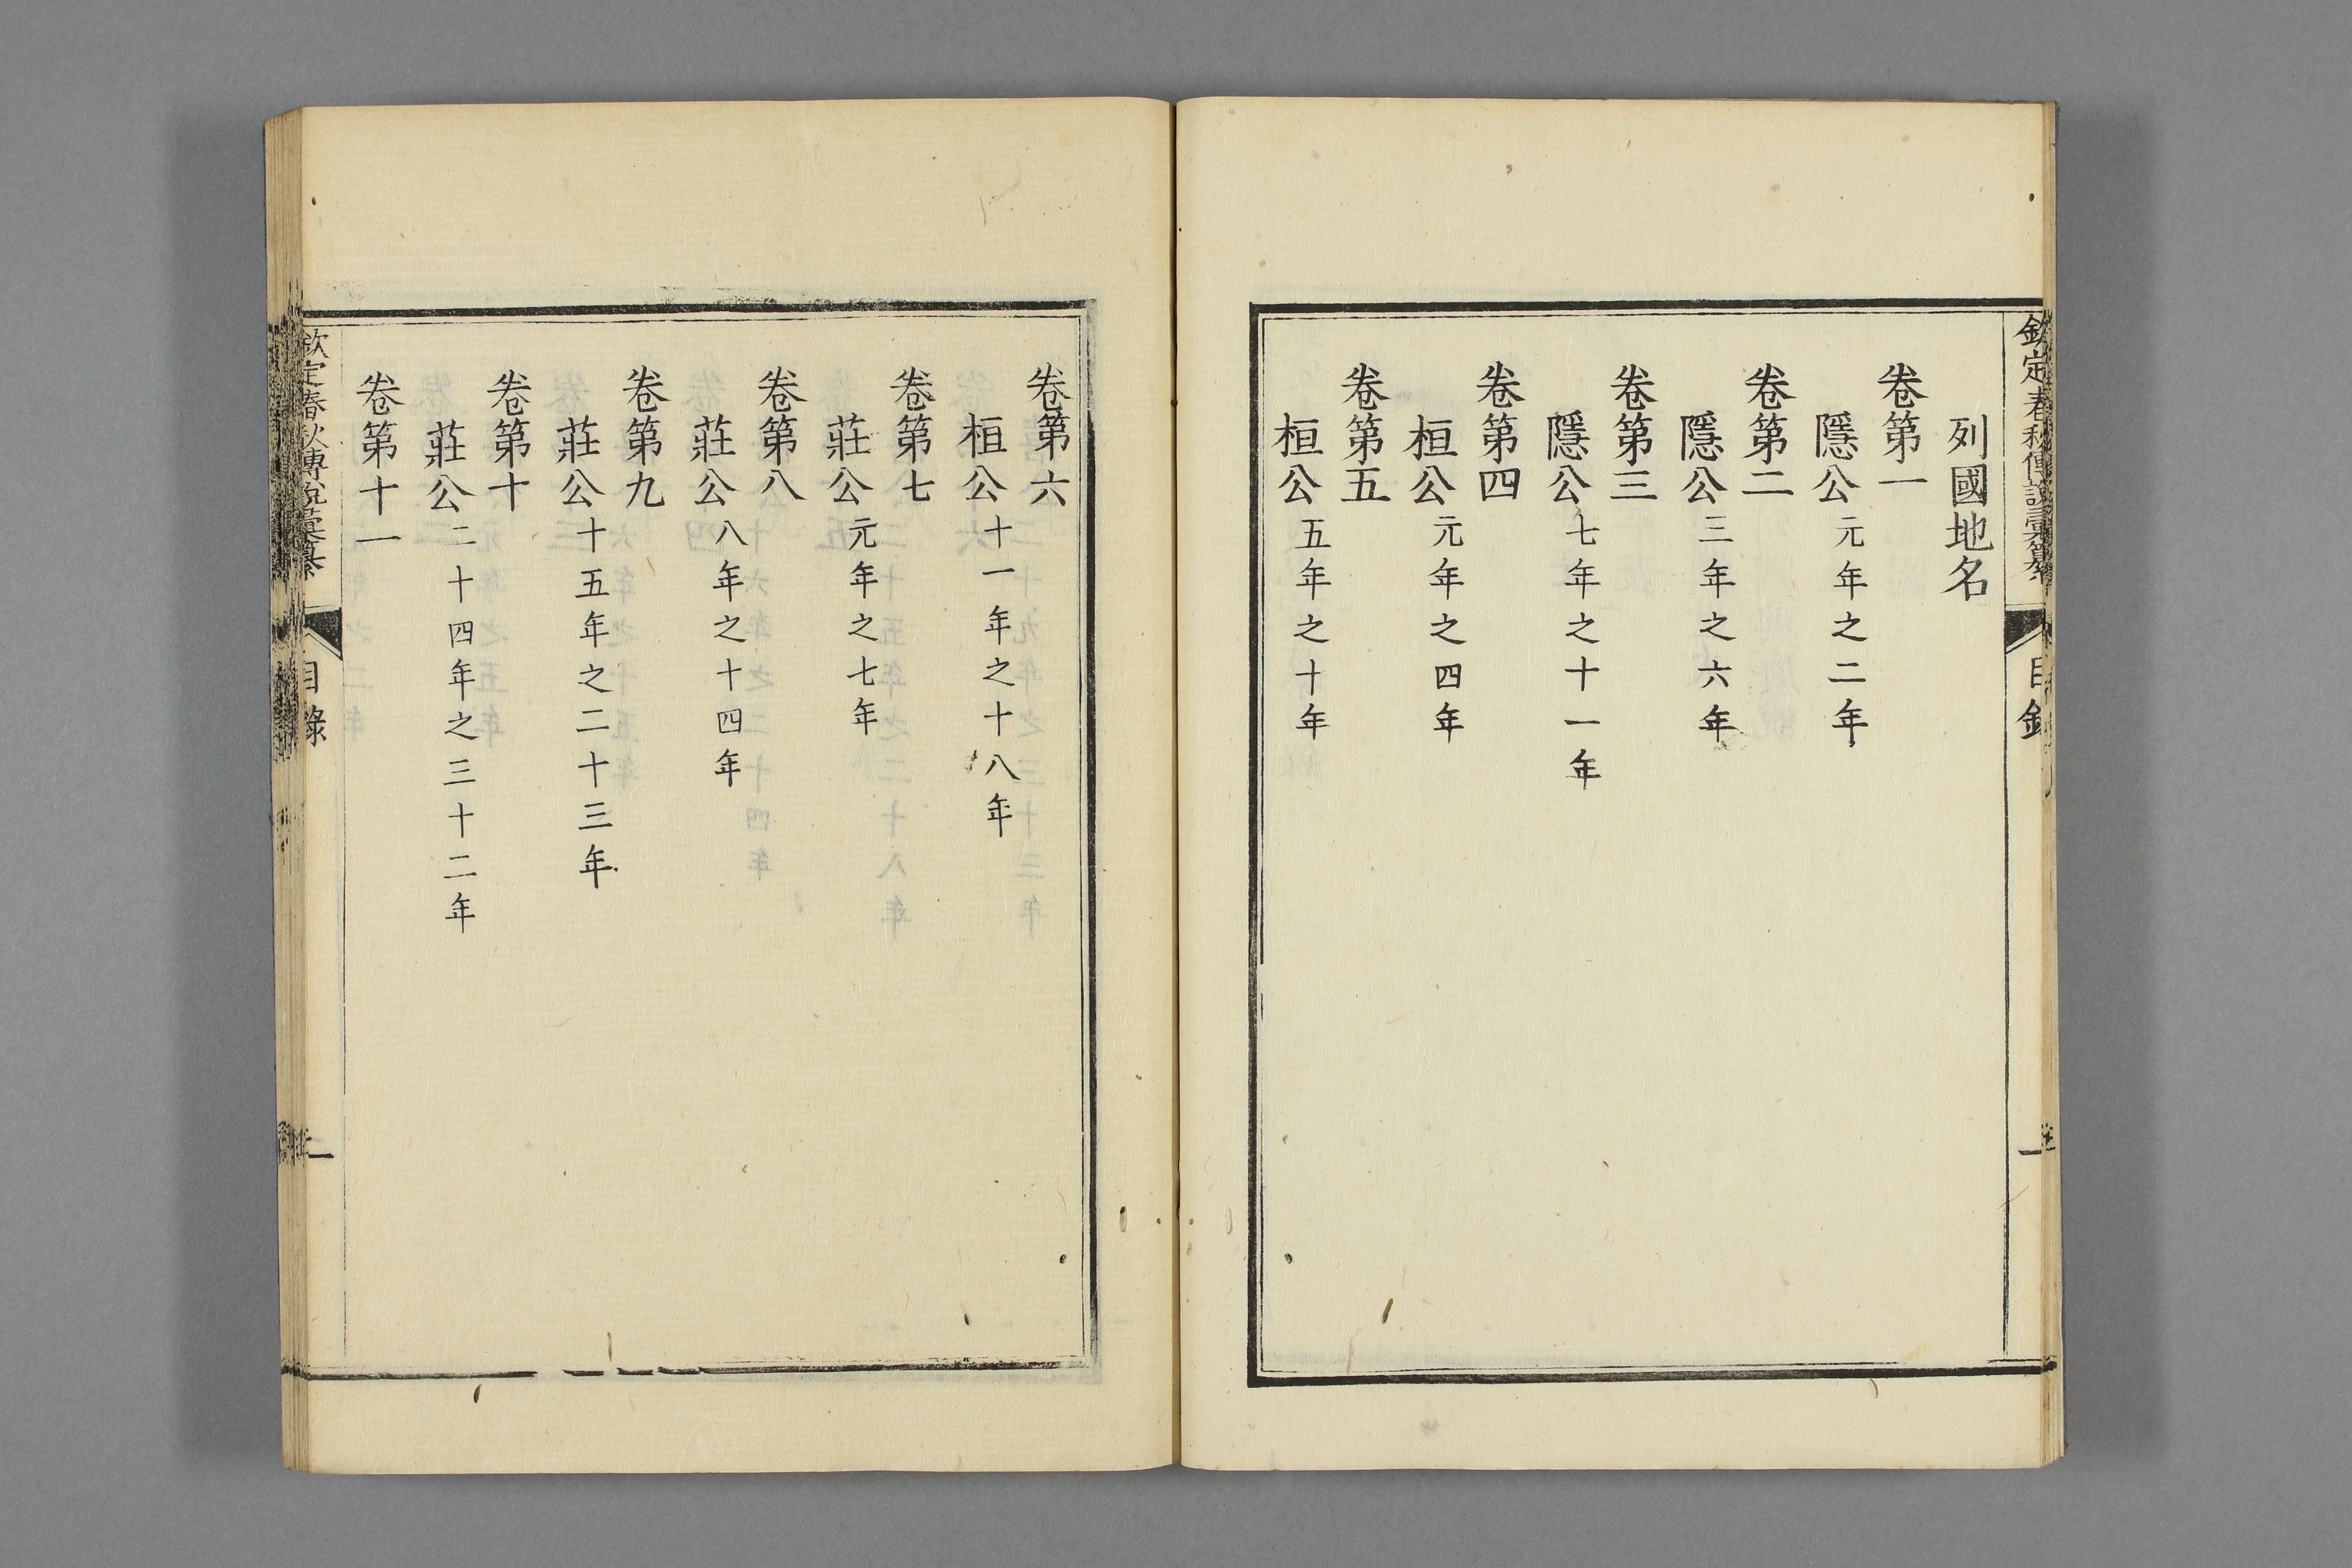 列國地名
卷第一
隱公元年之二年
卷第二
隱公三年之六年
卷第三
隱公七年之十一年
卷第四
桓公元年之四年
卷第五
桓公五年之十年
卷第六
桓公十一年之十八年
卷第七
莊公元年之七年
卷第八
莊公八年之十四年
卷第九
莊公十五年之二十三年
卷第十
莊公二十四年之三十二年
卷第十一
欽定春秋傳說彙纂
目錄